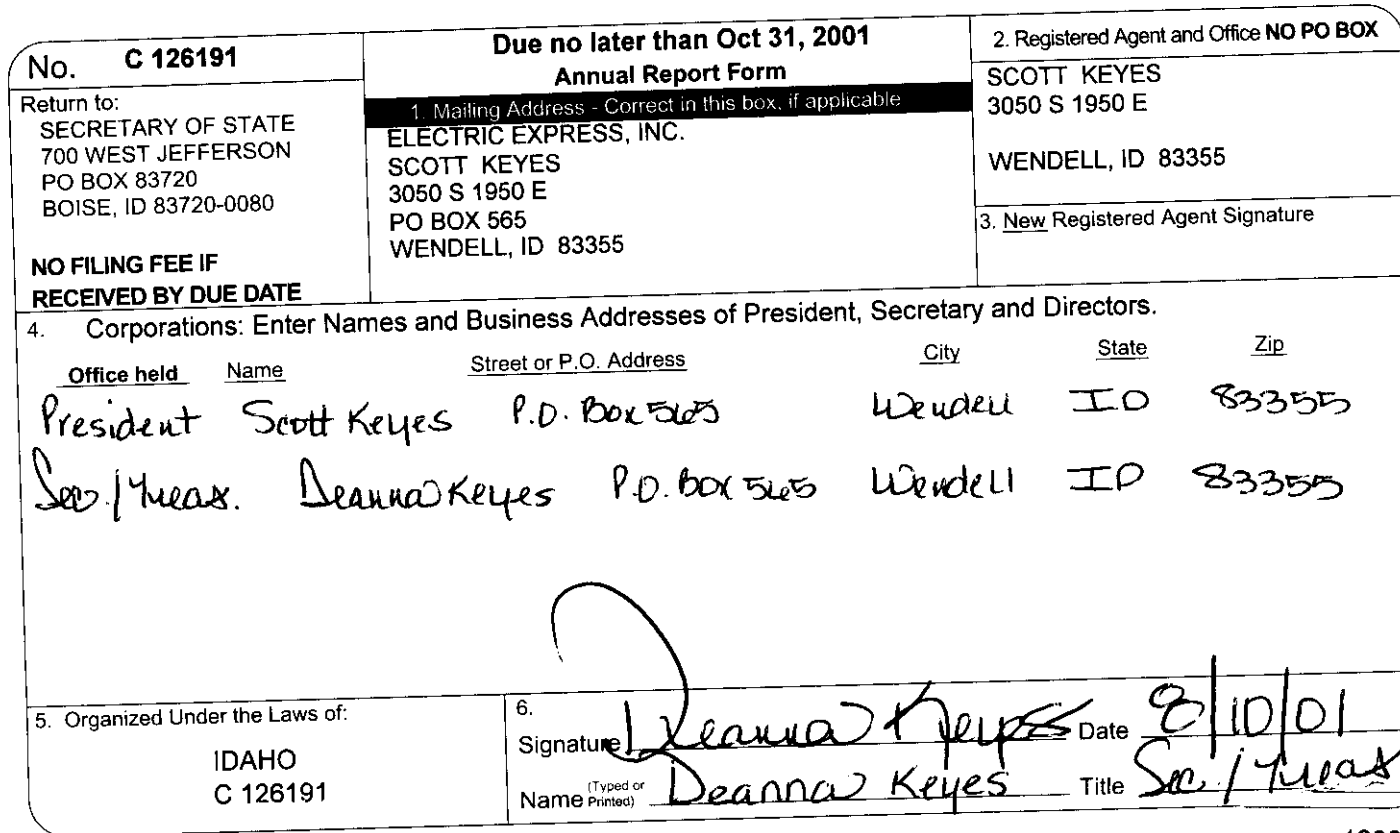 No. C 126191
Return to:
SECRETARY OF STATE
700 WEST JEFFERSON
PO BOX 83720
BOISE, ID 83720-0080
NO FILING FEE IF
RECEIVED BY DUE DATE
Due no later than Oct 31, 2001
Annual Report Form
1. Mailing Address - Correct in this box, if applicable
ELECTRIC EXPRESS, INC.
SCOTT KEYES
3050 S 1950 E
PO BOX 565
WENDELL, ID 83355
2. Registered Agent and Office NO PO BOX
SCOTT KEYES
3050 S 1950 E
WENDELL, ID 83355
3. New Registered Agent Signature
4. Corporations: Enter Names and Business Addresses of President, Secretary and Directors.
Office held Name Street or P.O. Address City State Zip
President Scott Keyes P.O. Box 565 Wendell ID 83355
Sec./Treas. Deanna Keyes P.O. Box 565 Wendell ID 83355
5. Organized Under the Laws of:
IDAHO
C 126191
6.
Signature Deanna Keyes Date 8/10/01
Name (Typed or Printed) Deanna Keyes Title Sec./Treas